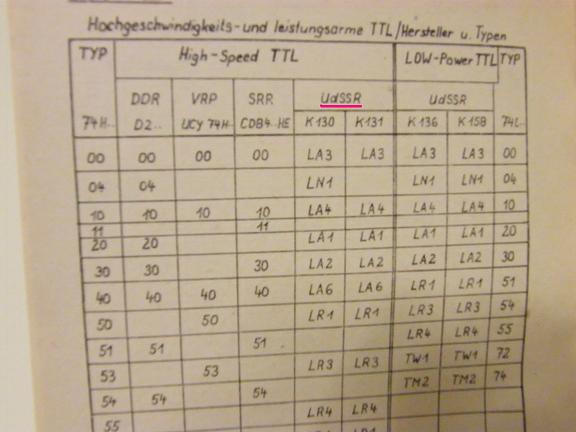 Hochgeschwindigkeits- und leistungsarme TTL/Hersteller u. Typen
TYP High-Speed TTL LOW-Power TTL TYP
DDR VRP SRR UdSSR UdSSR
74H.. D2.. UCY 74H.. CDB4..HE K130 K131 K136 K158 74L..
00 00 00 00 LA3 LA3 LA3 LA3 00
04 04 LN1 LN1 LN1 04
10 10 10 10 LA4 LA4 LA4 LA4 10
11 11
20 20 LA1 LA1 LA1 LA1 20
30 30 30 LA2 LA2 LA2 LA2 30
40 40 40 40 LA6 LA6 LR1 LR1 51
50 50 LR1 LR1 LR3 LR3 54
51 51 51 LR4 LR4 55
53 53 LR3 LR3 TW1 TW1 72
54 54 54 TM2 TM2 74
55 LR4 LR4